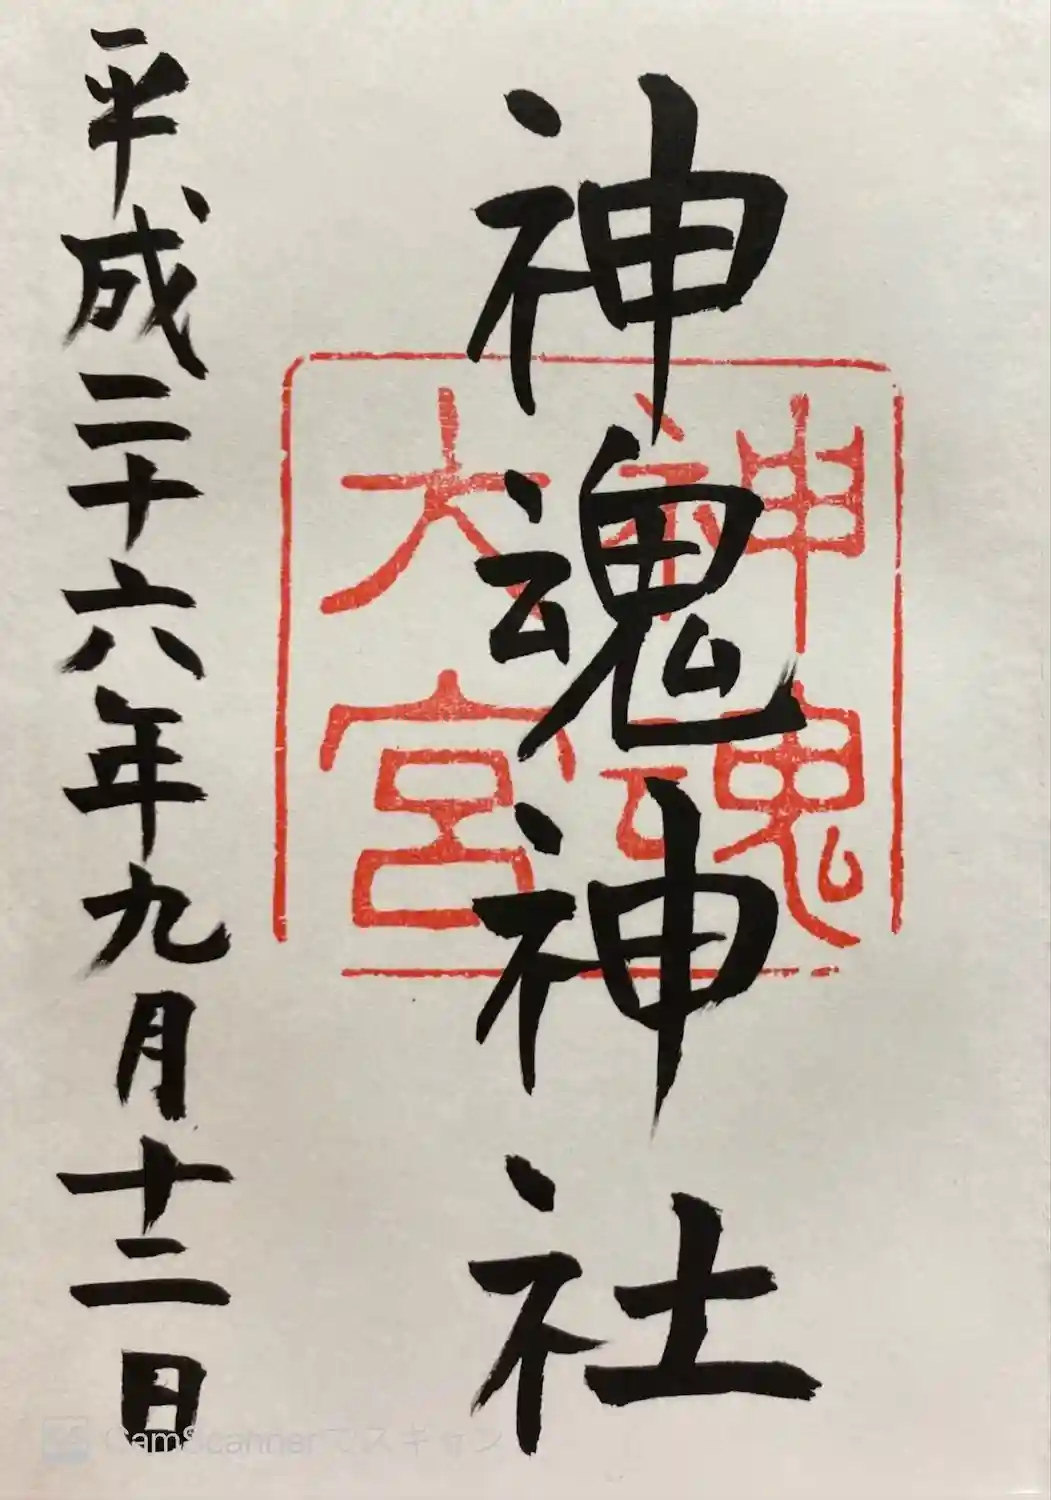 神魂神社
神魂
大宮
平成二十六年九月十二日
CS CamScannerでスキャン